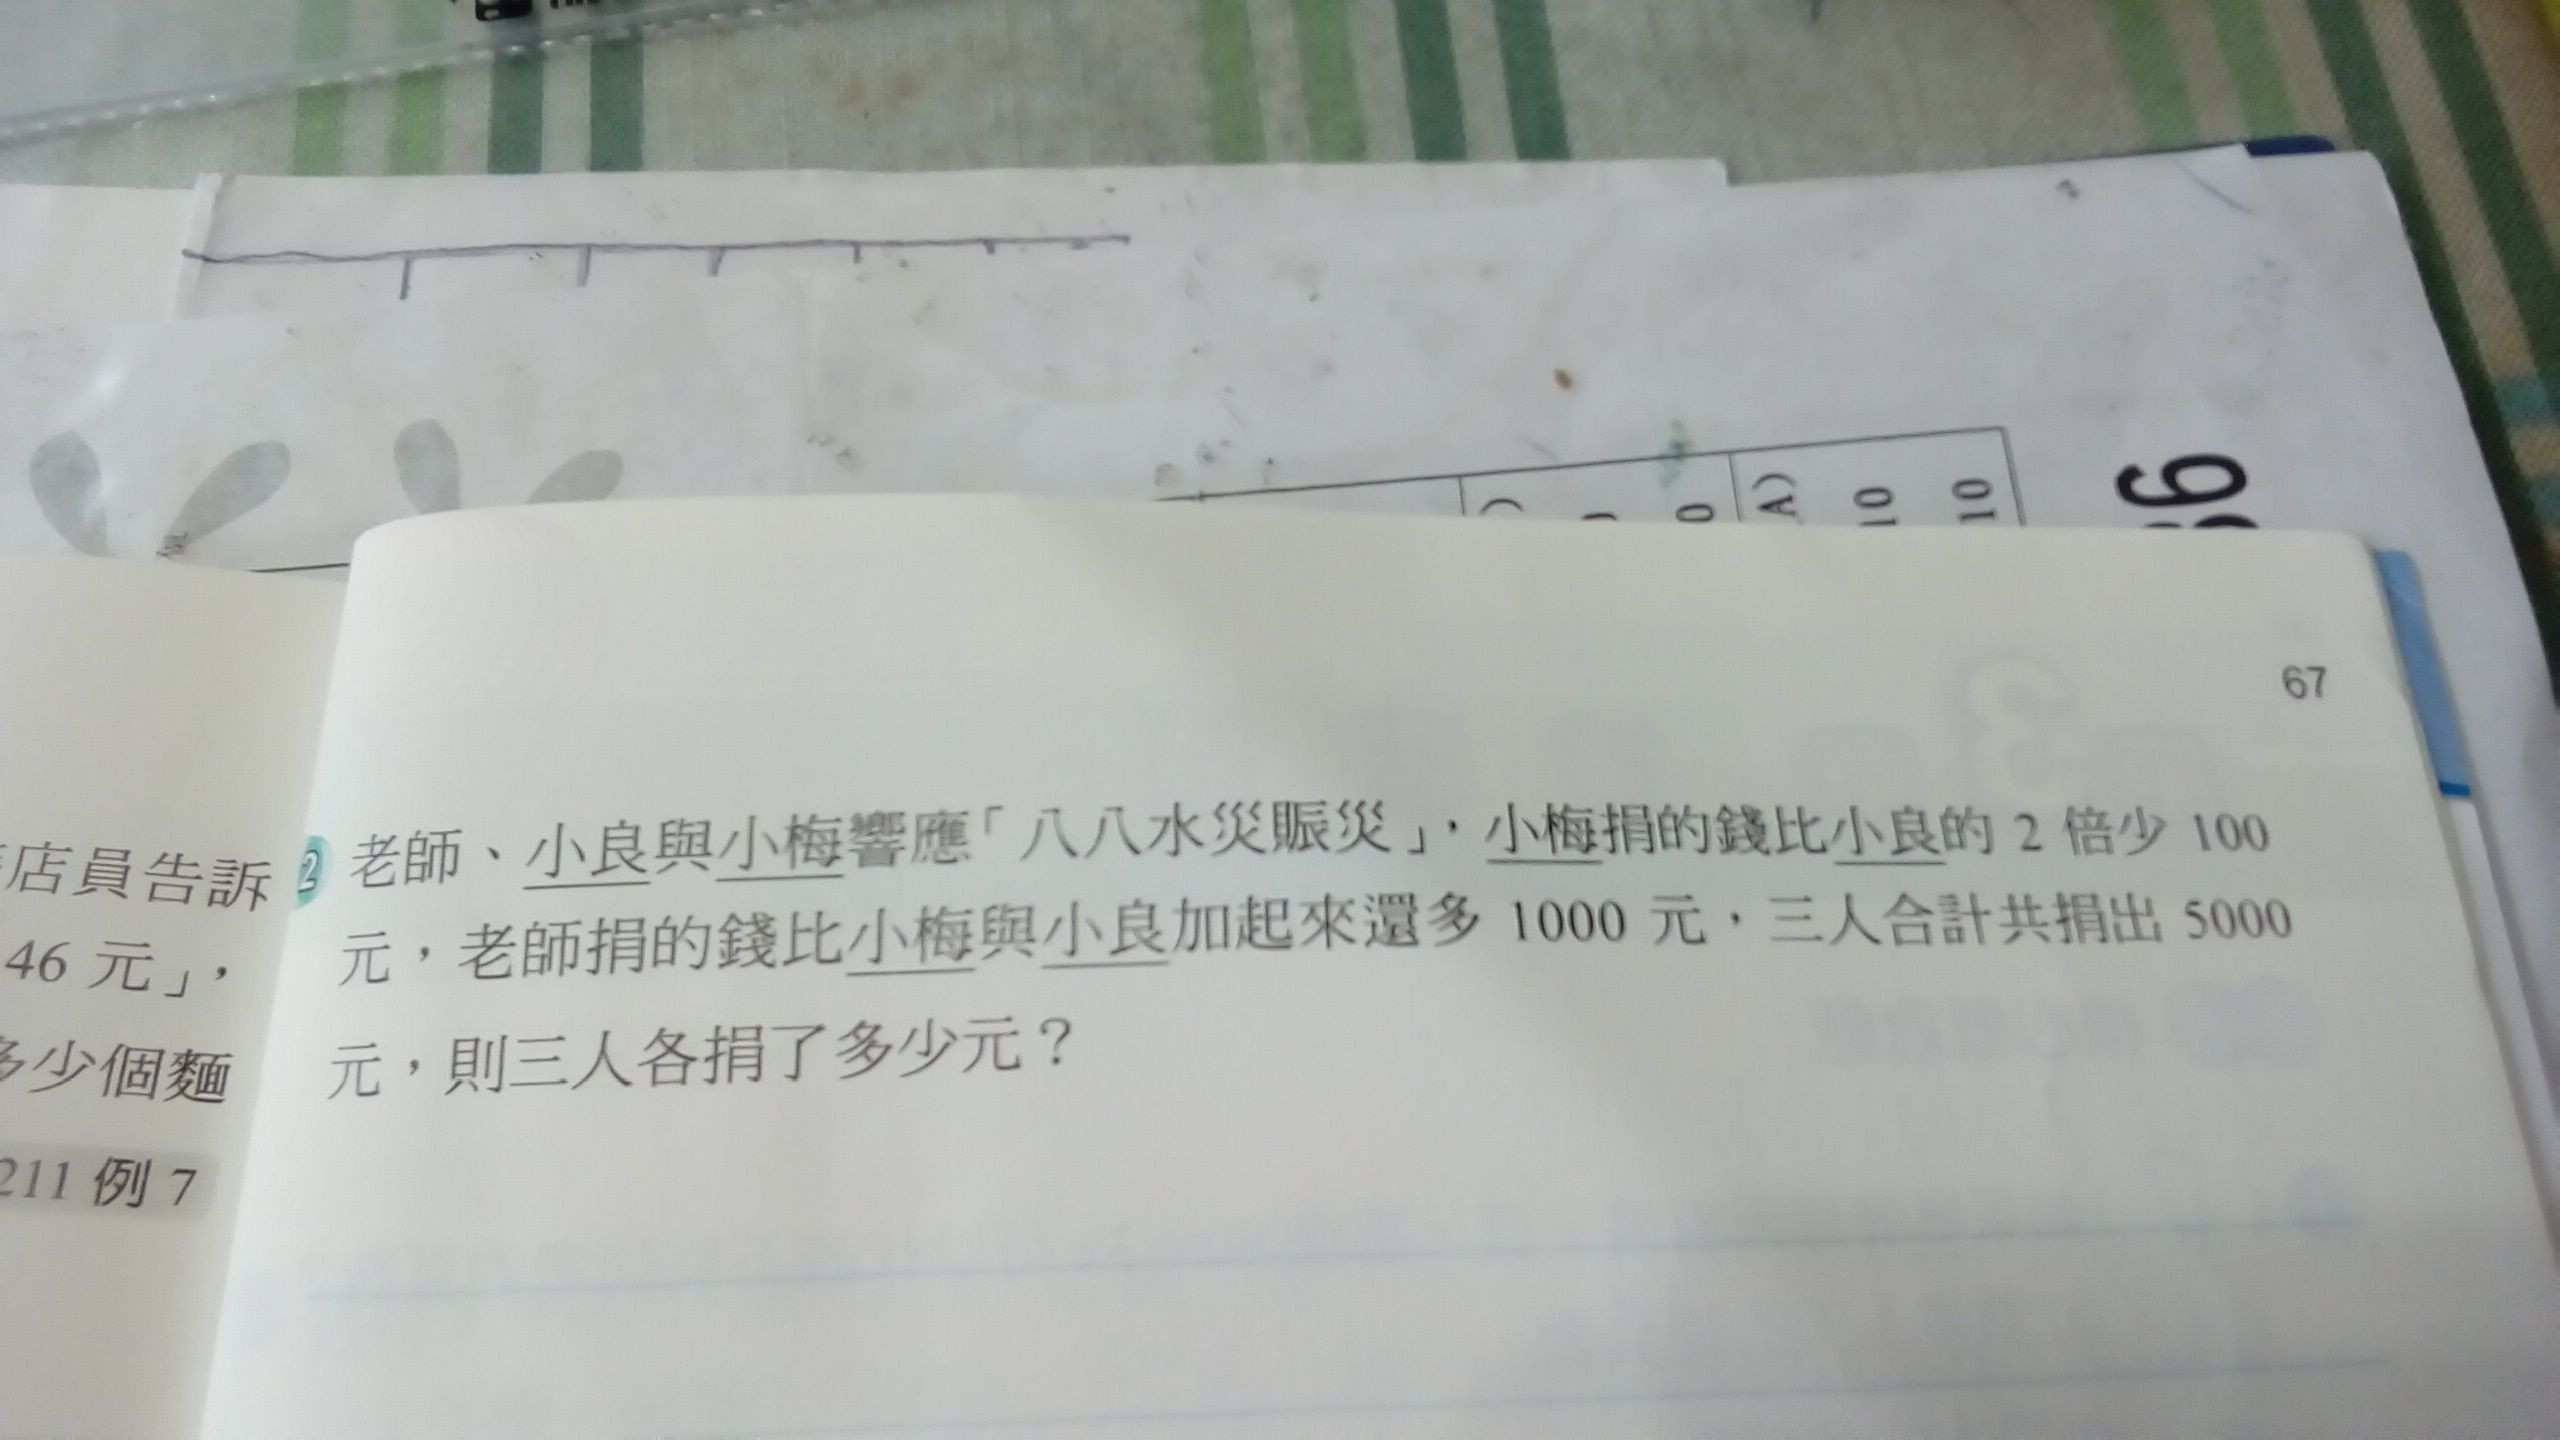 67
店員告訴
46 元」，
多少個麵
211 例 7
2 老師、小良與小梅響應「八八水災賑災」，小梅捐的錢比小良的 2 倍少 100
元，老師捐的錢比小梅與小良加起來還多 1000 元，三人合計共捐出 5000
元，則三人各捐了多少元？
A)
10
10